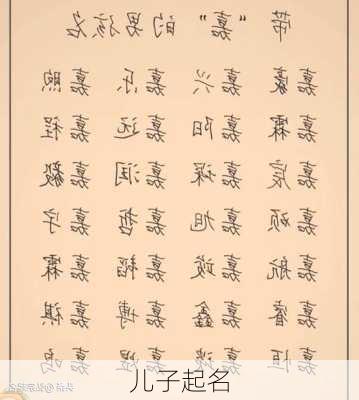 带“嘉”的男孩名
嘉豪 嘉兴 嘉乐 嘉煦
嘉霖 嘉阳 嘉远 嘉程
嘉宸 嘉琛 嘉润 嘉毅
嘉硕 嘉旭 嘉哲 嘉宇
嘉航 嘉竣 嘉韬 嘉霖
嘉睿 嘉鑫 嘉博 嘉祺
嘉恒 嘉瑞 嘉煜
儿子起名